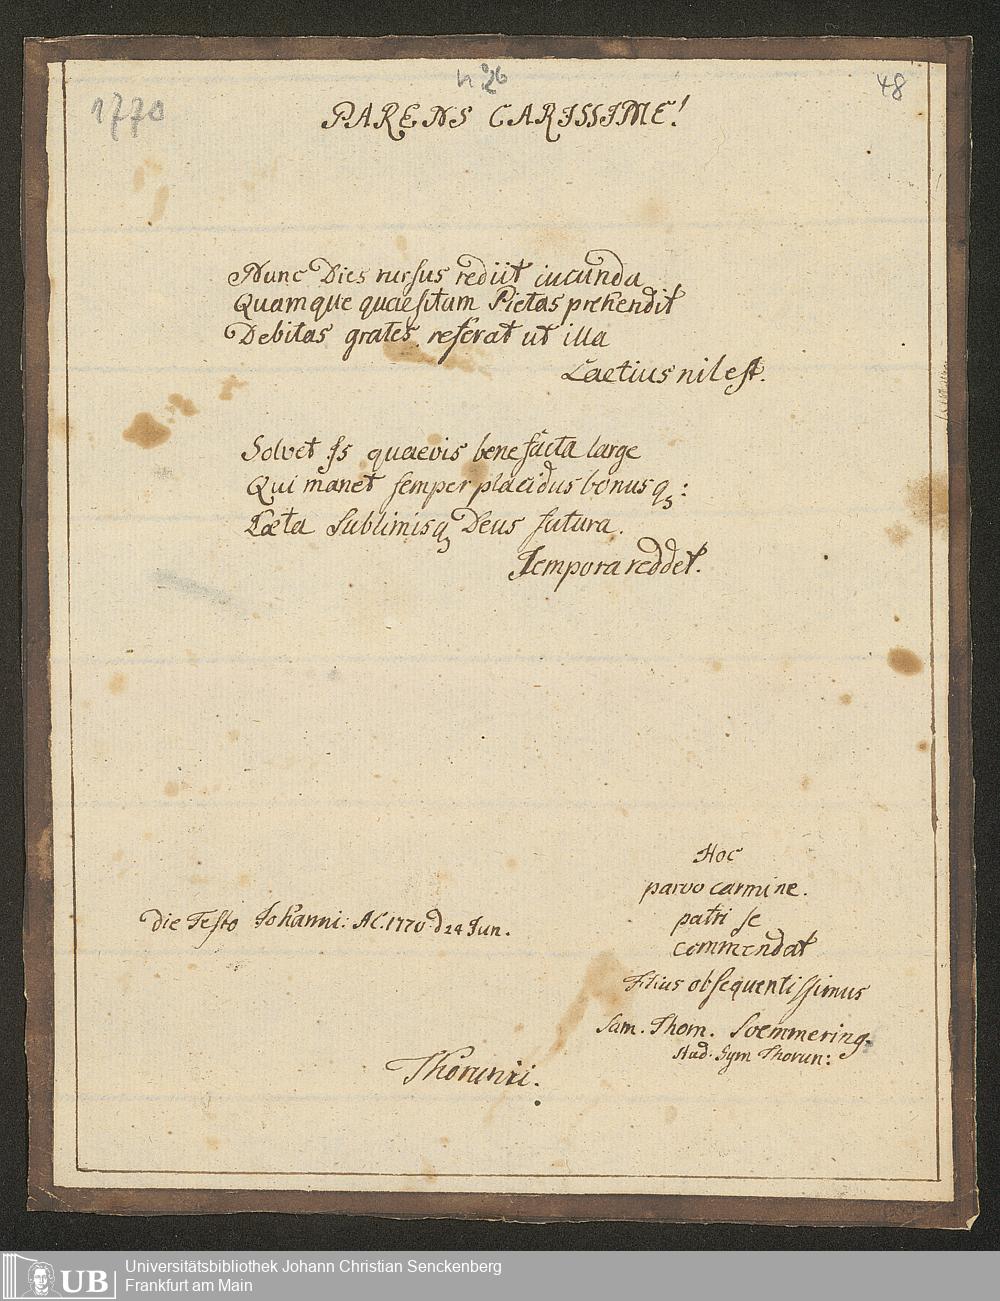 1770
n° 26
48
PARENS CARISSIME!
Nunc Dies rursus rediit iucunda
Quamque quaesitam Pietas prehendit
Debitas grates referat ut illa
Laetius nil est.
Solvet Is quaevis benefacta large
Qui manet semper placidus bonusq3:
Læta Sublimisq3 Deus futura.
Tempora reddet.
Hoc
parvo carmine.
patri se
commendat
Filius obsequentissimus
Sam. Thom. Soemmering.
Stud. Gym Thorun:
Die Festo Johanni: AC. 1770 d 24 Jun.
Thorunii.
UB
Universitätsbibliothek Johann Christian Senckenberg
Frankfurt am Main